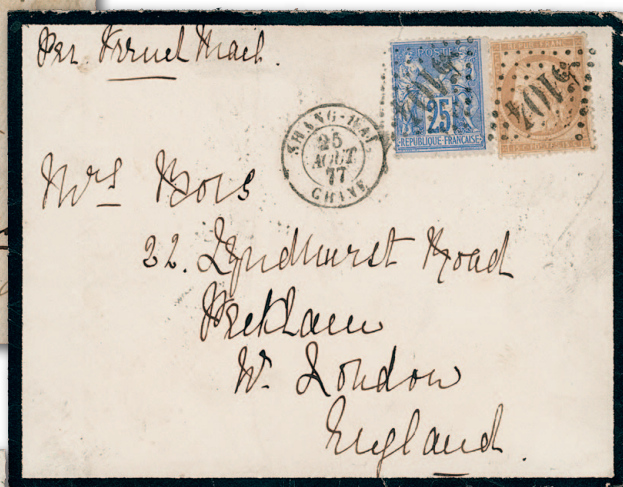 Per French Mail.
POSTES
25
REPUBLIQUE FRANÇAISE
5104
REPUB FRANC
5104
SHANG-HAI
25
AOUT
77
CHINE
Mrs Bois
22. Lyndhurst Road
Peckham
W. London
England.